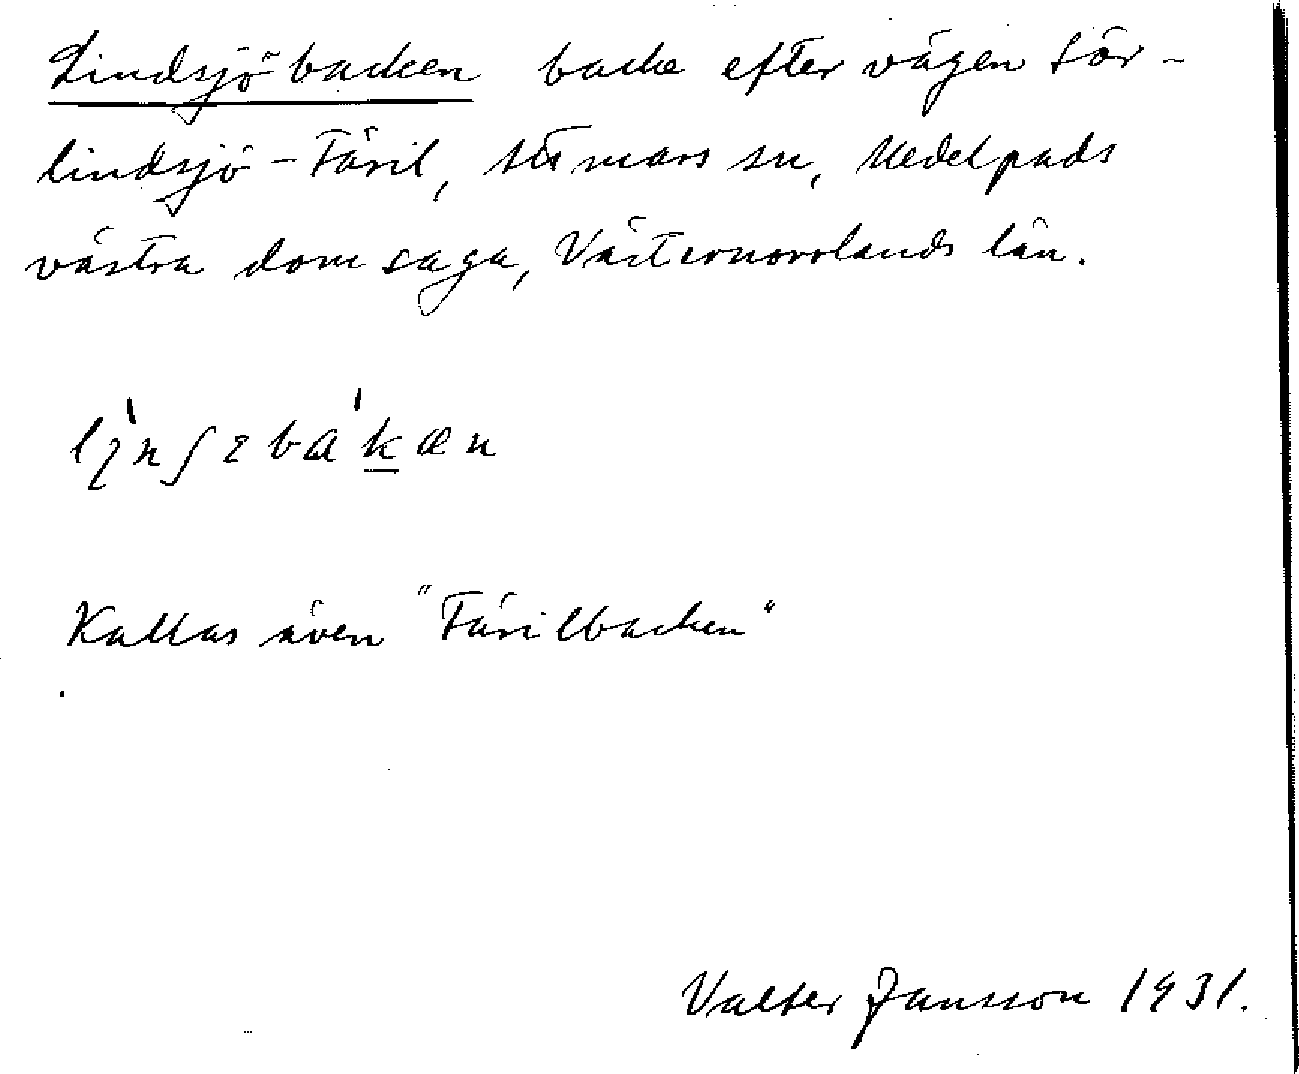 Lindsjöbacken backe efter vägen Sör-
lindsjö - Färil, Attmars sn, Medelpads
västra domsaga, Västernorrlands län.
Kallas även "Färilbacken"
Valter Jansson 1931.